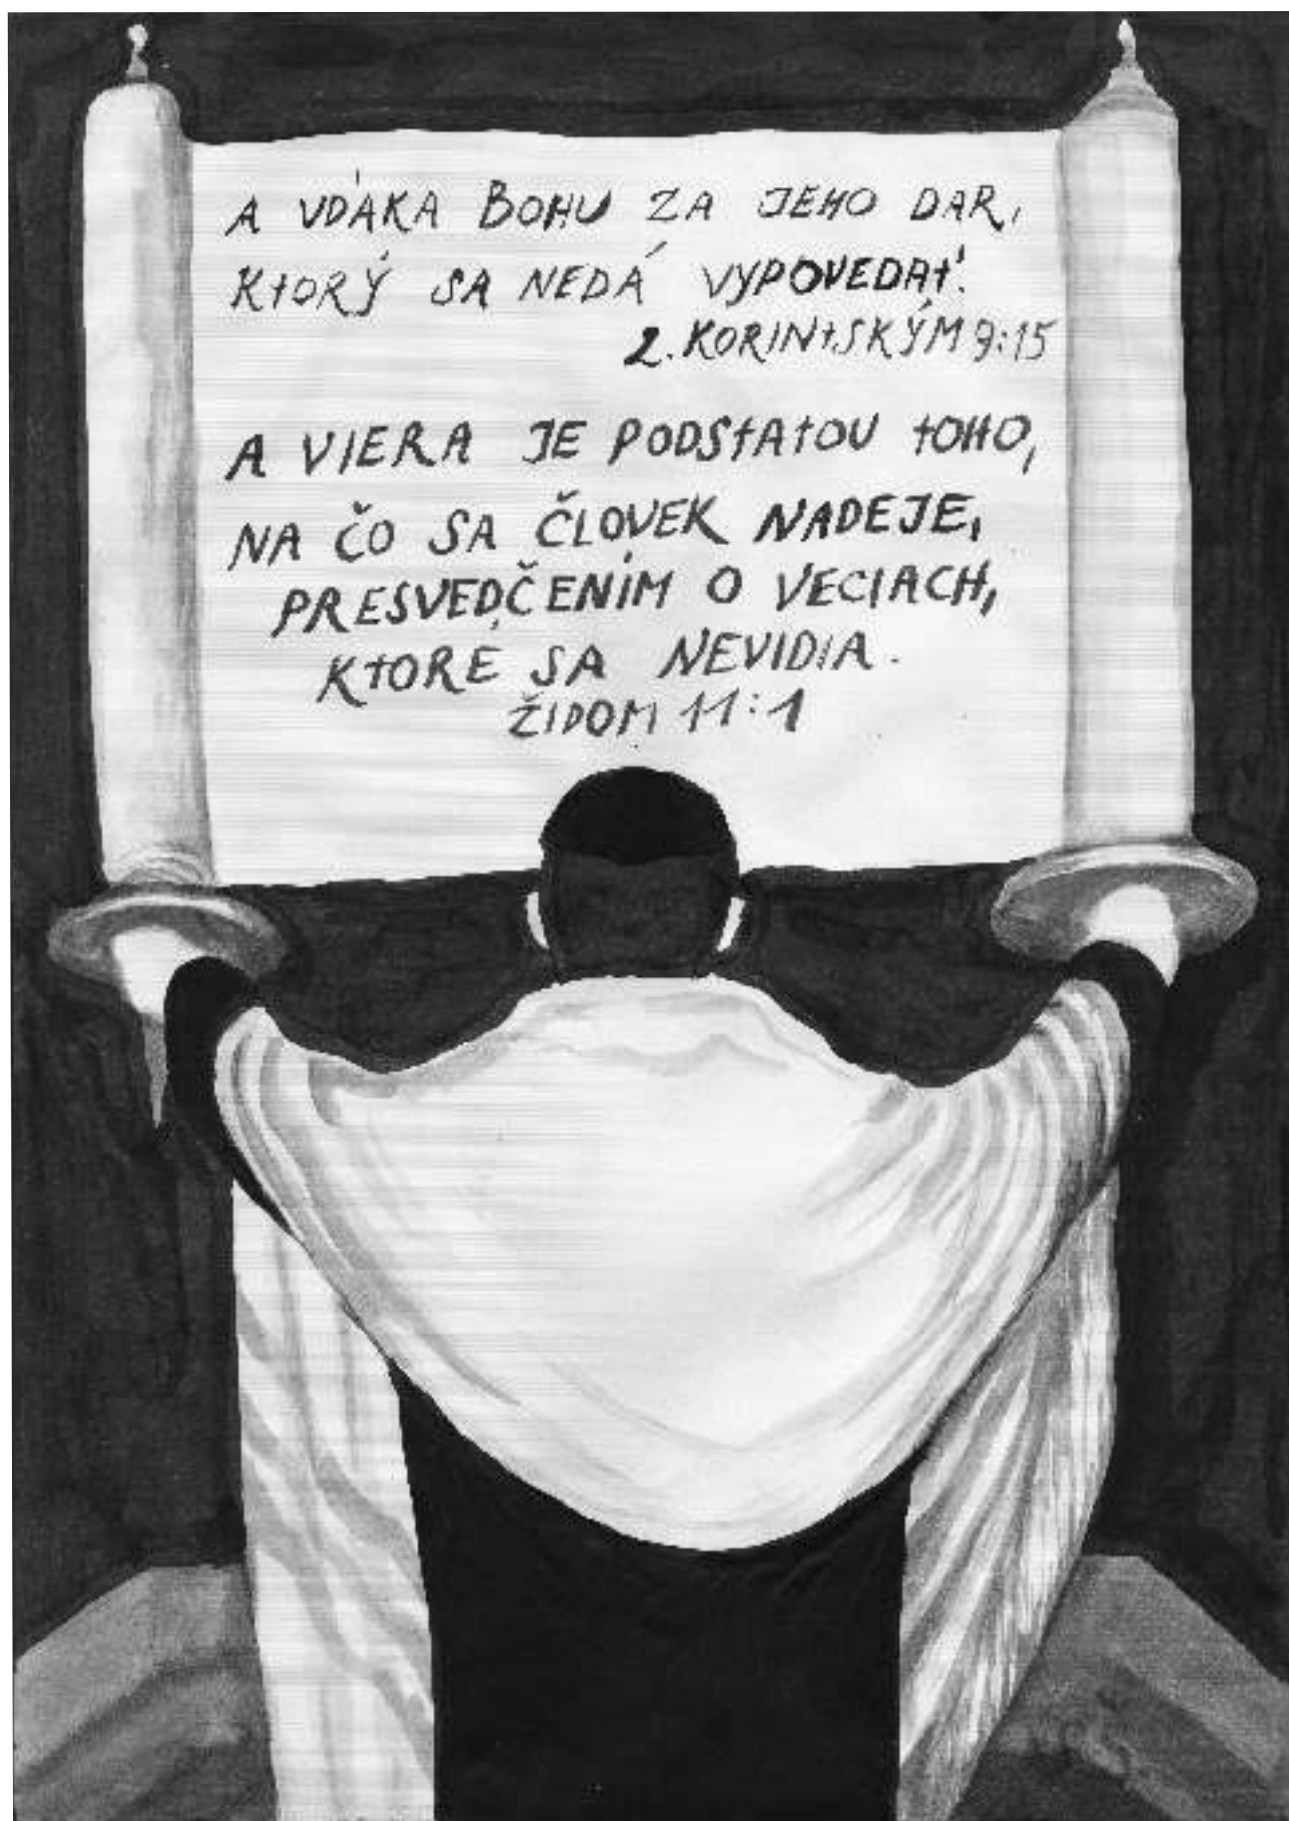 A VĎAKA BOHU ZA JEHO DAR,
KTORÝ SA NEDÁ VYPOVEDAŤ.
2. KORINTSKÝM 9:15
A VIERA JE PODSTATOU TOHO,
NA ČO SA ČLOVEK NADEJE,
PRESVEDČENÍM O VECIACH,
KTORÉ SA NEVIDIA.
ŽIDOM 11:1